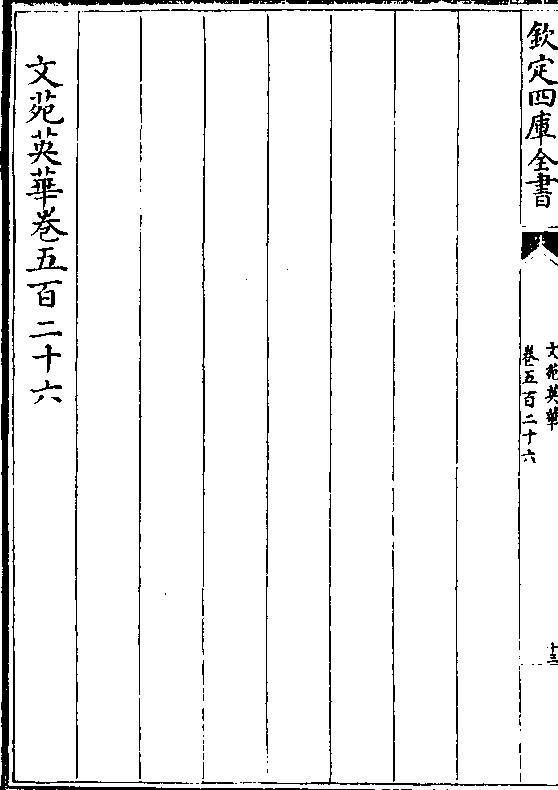 欽定四庫全書
文苑英華
卷五百二十六
十三
文苑英華卷五百二十六